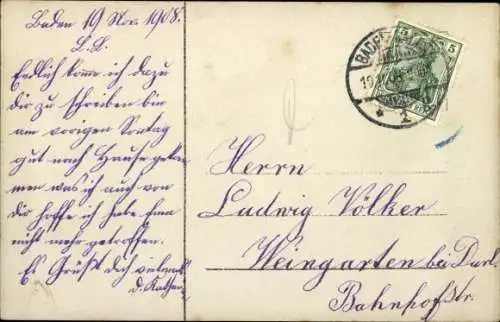 Baden 19 Nov. 1908.
L. L.
Endlich komme ich dazu
dir zu schreiben bin
am vorigen Sontag
gut nach Hause gekom
men was ich auch von
Dir hoffe ich habe Emma
nicht mehr getroffen.
Es Grüßt Dich vielmals
d.
Herrn
Ludwig Völker
Weingarten bei Durl.
Bahnhofstr.
BADEN
5 5